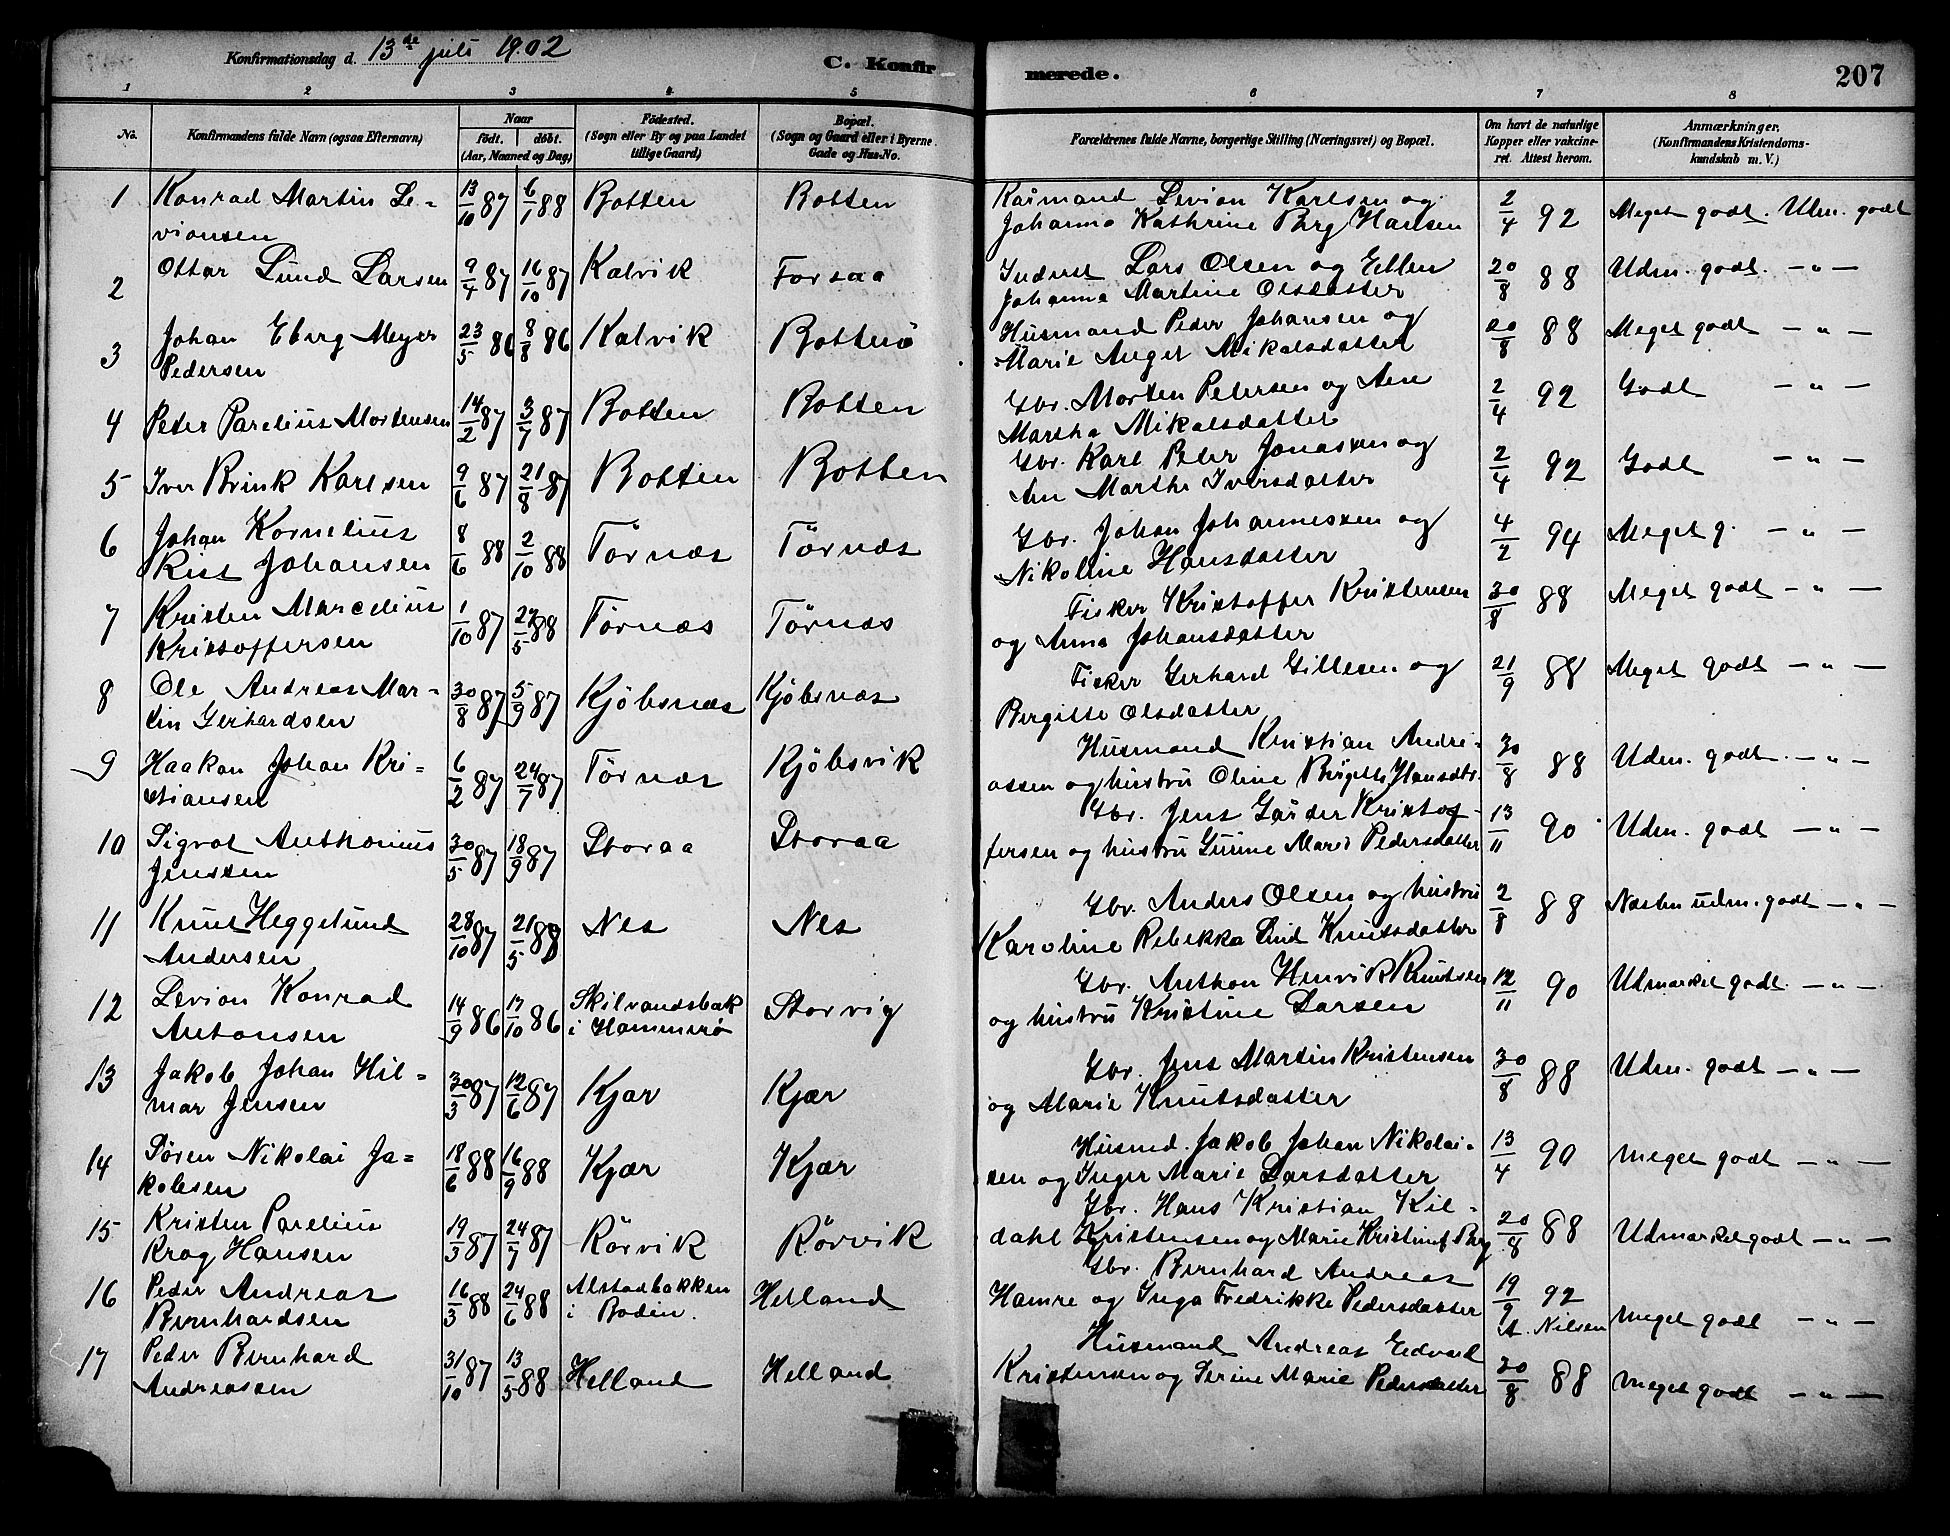 Konfirmationsdag d. 13de juli 1902 C. Konfirmerede. 207
1 2 3 4 5 6 7 8
No. Konfirmandens fulde Navn (ogsaa Efternavn) Naar født. døbt. (Aar, Maaned og Dag) Fødested. (Sogn eller By og paa Landet tillige Gaard) Bopæl. (Sogn og Gaard eller i Byerne Gade og Hus-No. Forældrenes fulde Navne, borgerlige Stilling (Næringsvei) og Bopæl. Om havt de naturlige Kopper eller vakcineret. Attest herom. Anmærkninger. (Konfirmandens Kristendomskundskab m. V.)
1 Konrad Martin Le- 13/10 87 6/1 88 Botten Botten Levion Karlsen og 2/4 92 Meget godt. Udm. godt
vionsen Johanna Kathrine Berg Hansen
2 Ottar Lund Larsen 9/4 87 16/10 87 Kalvik Forsaa Inderst Lars Olsen og Ellen 20/8 88 Udm. godt. —"—
Johanna Martine Olsdatter
3 Johan Eberg Meyer 23/5 86 8/8 86 Kalvik Husmand Peder Johansen og 20/8 88 Meget godt —"—
Pedersen Marie Anget Mikalsdatter
4 Peder Parelius Mortensen 14/2 87 3/7 87 Botten Botten Gbr. Morten Petersen og Ane 2/4 92 Godt —"—
Martha Mikalsdatter
5 Iver Brink Karlsen 9/6 87 21/8 87 Botten Botten Gbr. Karl Peter Jonassen og 2/4 92 Godt —"—
Ane Marthe Iversdatter
6 Johan Kornelius 8/6 88 2/10 88 Tørnæs Tørnæs Gbr. Johan Johannessen og 4/2 94 Meget g. —"—
Johansen Nikoline Hansdatter
7 Kristen Marcelius 1/10 87 27/5 88 Tørnæs Tørnæs Fisker Kristoffer Kristensen 30/8 88 Meget godt —"—
Kristoffersen og Anna Johansdatter
8 Ole Andreas Mar- 30/8 87 5/9 87 Kjøbsnæs Kjøbsnæs Fisker Gerhard Gillesen og 21/9 88 Meget godt —"—
tin Gerhardsen Bergitte Olsdatter
9 Haakon Johan Kri- 6/2 87 24/7 87 Tørnæs Kjøbsvik Husmand Kristian Andre- 30/8 88 Udm. godt. —"—
stiansen assen og hustru Oline Birgitte Hansdtr.
10 Sigvot Anthonius 30/5 87 18/9 87 Storaa Storaa Gbr. Jens Gaarder Kristof- 13/11 90 Udm. godt —"—
Jenssen fersen og hustru Gurine Marie Pedersdatter
11 Knut Heggelund 28/10 87 21/5 88 Nes Nes Gbr. Anders Olsen og hustru 2/8 88 Næsten udm. godt —"—
Andersen Karoline Rebekka Lind Knutsdatter
12 Levion Konrad 14/9 86 17/10 86 Skilvandsbak Storvig Gbr. Anthon Henrik Knutsen 12/11 90 Udmærket godt. —"—
Antonsen i Hammerø og hustru Kristine Larsen
13 Jakob Johan Hil- 30/3 87 12/6 87 Kjær Kjær Gbr. Jens Martin Kristensen 30/8 88 Udm. godt —"—
mar Jensen og Marie Knutsdatter
14 Søren Nikolai Ja- 18/6 88 16/9 88 Kjær Kjær Husmd. Jakob Johan Nikolai- 13/4 90 Meget godt —"—
kobsen sen og Inger Marie Larsdatter
15 Kristen Parelius 19/3 87 24/7 87 Rørvik Rørvik Gbr. Hans Kristian Kil- 20/8 88 Udmærket godt —"—
Krog Hansen dahl Kristensen og Marie Kristine Berg
16 Peder Andreas 16/3 88 24/6 88 Alstadbakken Helland Gbr. Bernhard Andreas 19/9 92 Meget godt —"—
Bernhardsen i Bodin. Hamre og Inga Fredrikke Pedersdatter A. Nilsen
17 Peder Bernhard 31/10 87 13/5 88 Helland Helland Husmand Andreas Edvard 30/8 88 Meget godt —"—
Andreassen Kristensen og Serine Marie Pedersdatter